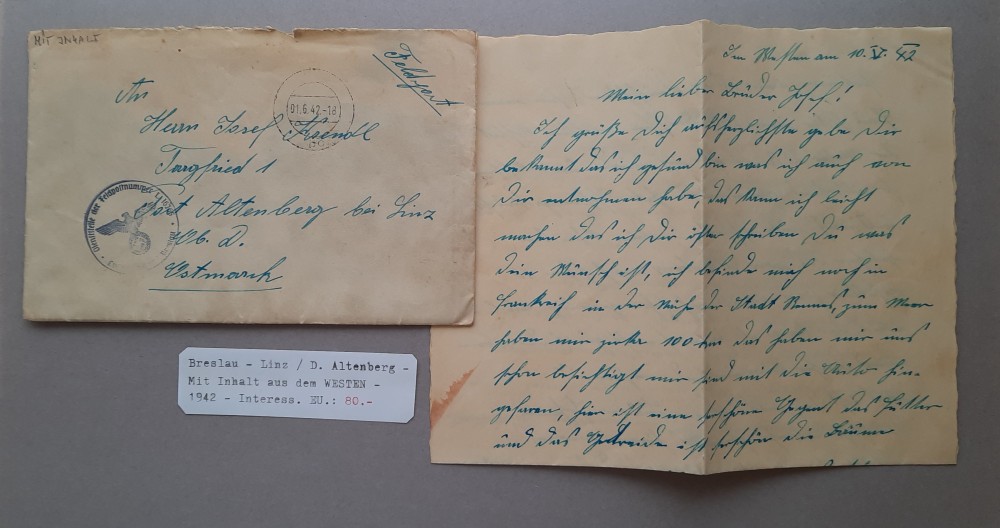 MIT INHALT
Feldpost
01.6.42-18
An
Herrn Josef
1
Post Altenberg bei Linz
Ob. D.
Ostmark
Breslau - Linz / D. Altenberg -
Mit Inhalt aus dem WESTEN -
1942 - Interess. EU.: 80.-
Im Westen am 10. V. 42
Mein lieber Brüder
Ich grüße Dich aufs herzlichste gebe Dir
bekannt das ich gesund bin was ich auch von
Dir entnohmen habe, das kann ich leicht
machen das ich Dir öfter schreiben Du was
dein Wünsch ist, ich befinde mich noch in
Frankreich in der Nähe der Stadt Rennes, zum Meer
haben mir zirka 100 km das haben mir uns
schon besichtigt mir sind mit die Auto hin-
gefaren, hier ist eine schöne Gegent das Futter
und das Getreide ist schön die Bäume